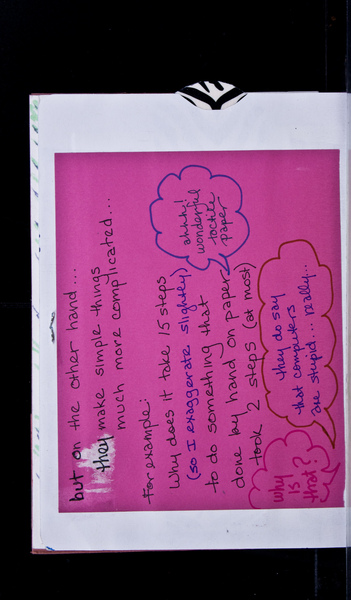 but on the other hand...
they make simple things
much more complicated...
For example:
Why does it take 15 steps
(so I exaggerate slightly)
to do something that
done by hand on paper
took 2 steps (at most)
ahhh!
wonderful
tactile
paper
why
is
that?
they do say
that computers
are stupid... really...